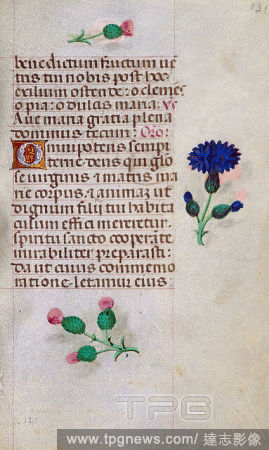 131
benedictum fructum ue
tris tui nobis post hoc
exilium ostende: o clemēs
o pia: o dulcis maria. Vs
Aue maria gratia plena
dominus tecum: Oro:
Omnipotens sempi
terne deus qui glo
se uirginis et matris ma
rie corpus et animaz ut
dignum filij tui habita
culum effici mereretur
spiritu sancto cooperāte
mirabiliter preparasti:
da ut cuius commemo
ratione letamur eius:
TPG
www.tpgnews.com/ 達志影像